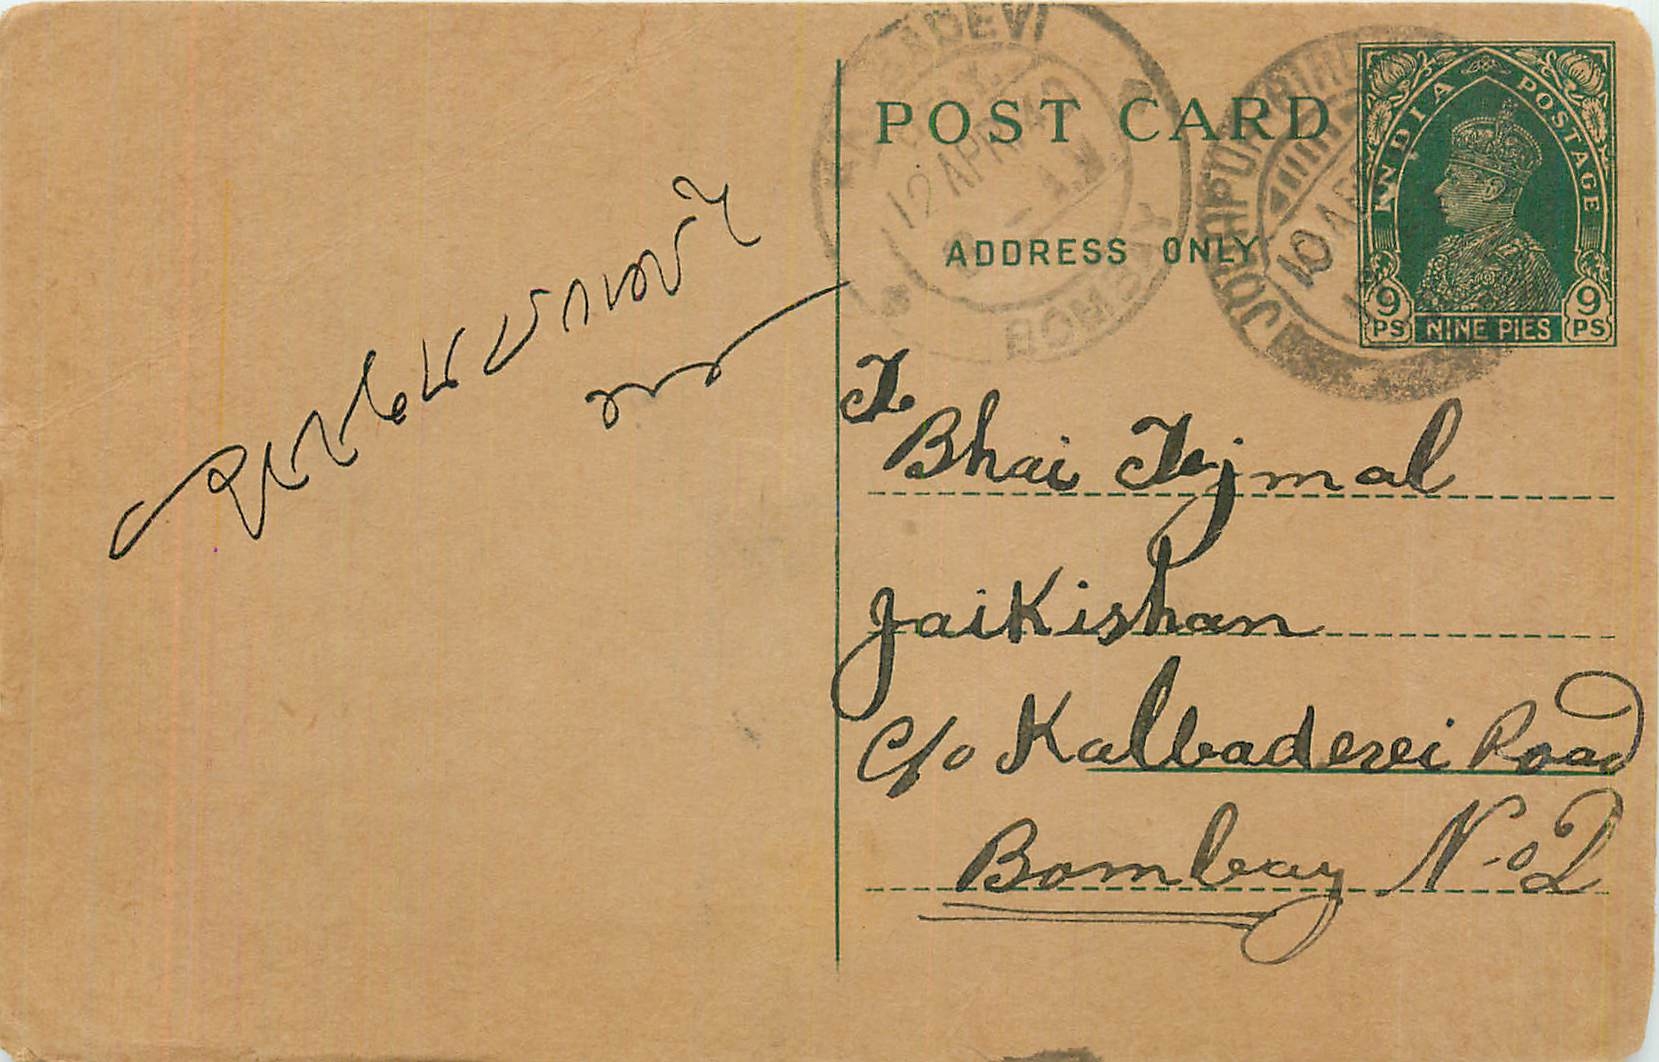 KALBADEVI
12 APR 40
BOMBAY
POST CARD
ADDRESS ONLY
JODHPUR
10 APR
INDIA POSTAGE
9 PS
NINE PIES
9 PS
To
Bhai Tejmal
Jaikishan
C/o Kalbadevi Road
Bombay No 2